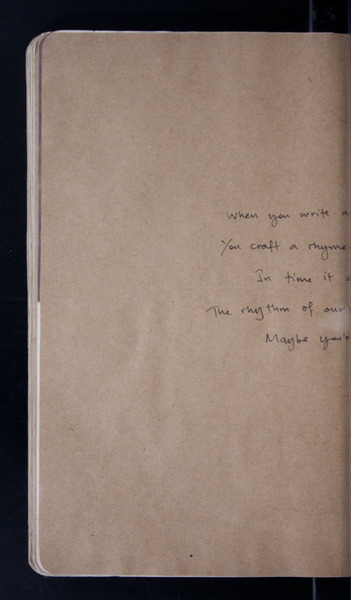 When you write a
You craft a rhyme
In time it
The rhythm of our
Maybe